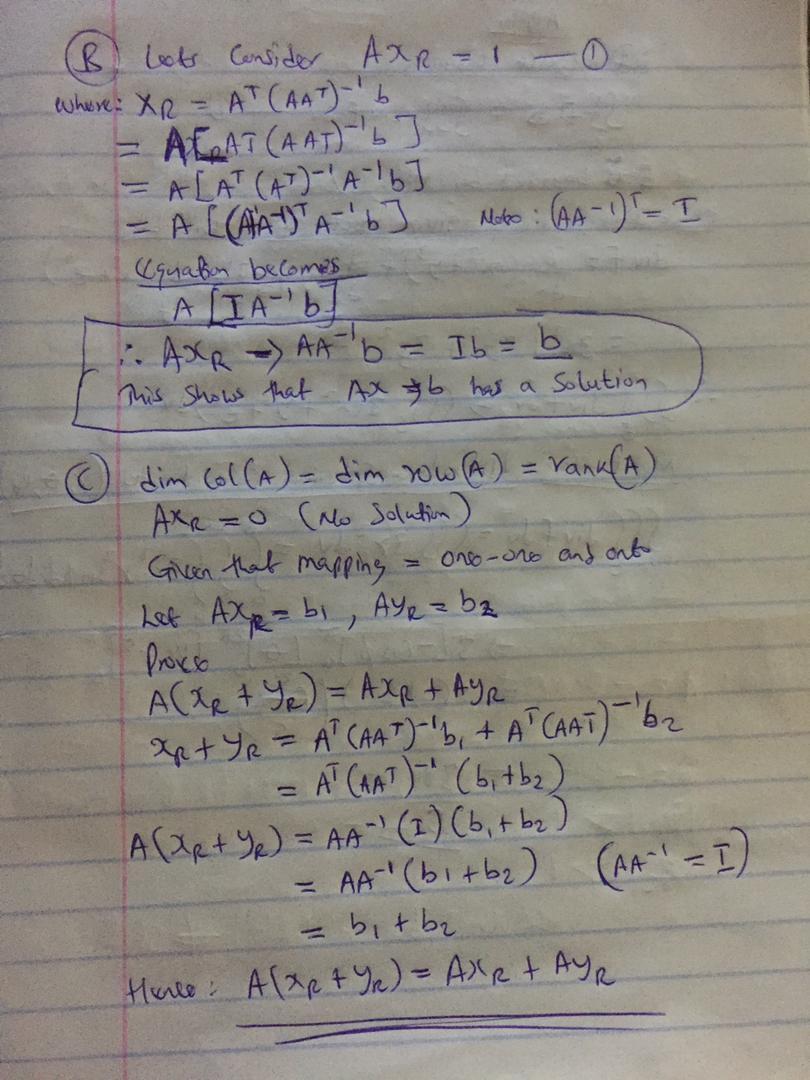 (B) Lets Consider AxR = 1 — ①
where: xR = Aᵀ(AAᵀ)⁻¹ b
= A[Aᵀ(AAᵀ)⁻¹b]
= A[Aᵀ(Aᵀ)⁻¹A⁻¹b]
= A[(AA⁻¹)ᵀ A⁻¹b] Note: (AA⁻¹)ᵀ = I
Equation becomes
A[I A⁻¹b]
∴ AxR → AA⁻¹b = Ib = b
This shows that Ax = b has a Solution
(C) dim Col(A) = dim row(A) = rank(A)
AxR = 0 (No Solution)
Given that mapping = one-one and onto
Let AxR = b₁, AyR = b₂
Prove
A(xR + yR) = AxR + AyR
xR + yR = Aᵀ(AAᵀ)⁻¹b₁ + Aᵀ(AAᵀ)⁻¹b₂
= Aᵀ(AAᵀ)⁻¹ (b₁+b₂)
A(xR + yR) = AA⁻¹(I)(b₁+b₂)
= AA⁻¹(b₁+b₂) (AA⁻¹ = I)
= b₁ + b₂
Hence: A(xR + yR) = AxR + AyR